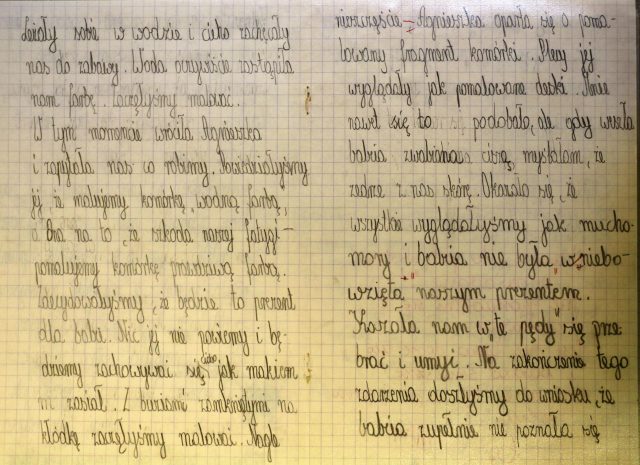 Leżały sobie w wodzie i cicho zachęcały
nas do zabawy. Woda oczywiście zastąpiła
nam farbę. Zaczęłyśmy malować.
W tym momencie wróciła Agnieszka
i zapytała nas co robimy. Powiedziałyśmy
jej, że malujemy komórkę „wodną farbą”,
a Ona na to, że szkoda naszej fatygi –
pomalujmy komórkę prawdziwą farbą.
Zdecydowałyśmy, że będzie to prezent
dla babci. Nic jej nie powiemy i bę-
dziemy zachowywać się cicho jak makiem
zasiał. Z buziami zamkniętymi na
kłódkę zaczęłyśmy malować. Nagle
nieszczęście – Agnieszka oparła się o poma-
lowany fragment komórki. Plecy jej
wyglądały jak pomalowane deski. Mnie
nawet się to podobało, ale gdy weszła
babcia zwabiona ciszą, myślałam, że
zedrze z nas skórę. Okazało się, że
wszystkie wyglądałyśmy jak mucho-
mory i babcia nie była wniebo-
wzięta naszym prezentem.
Kazała nam w "te pędy" się prze
brać i umyć. Na zakończenie tego
zdarzenia doszłyśmy do wniosku, że
babcia zupełnie nie poznała się